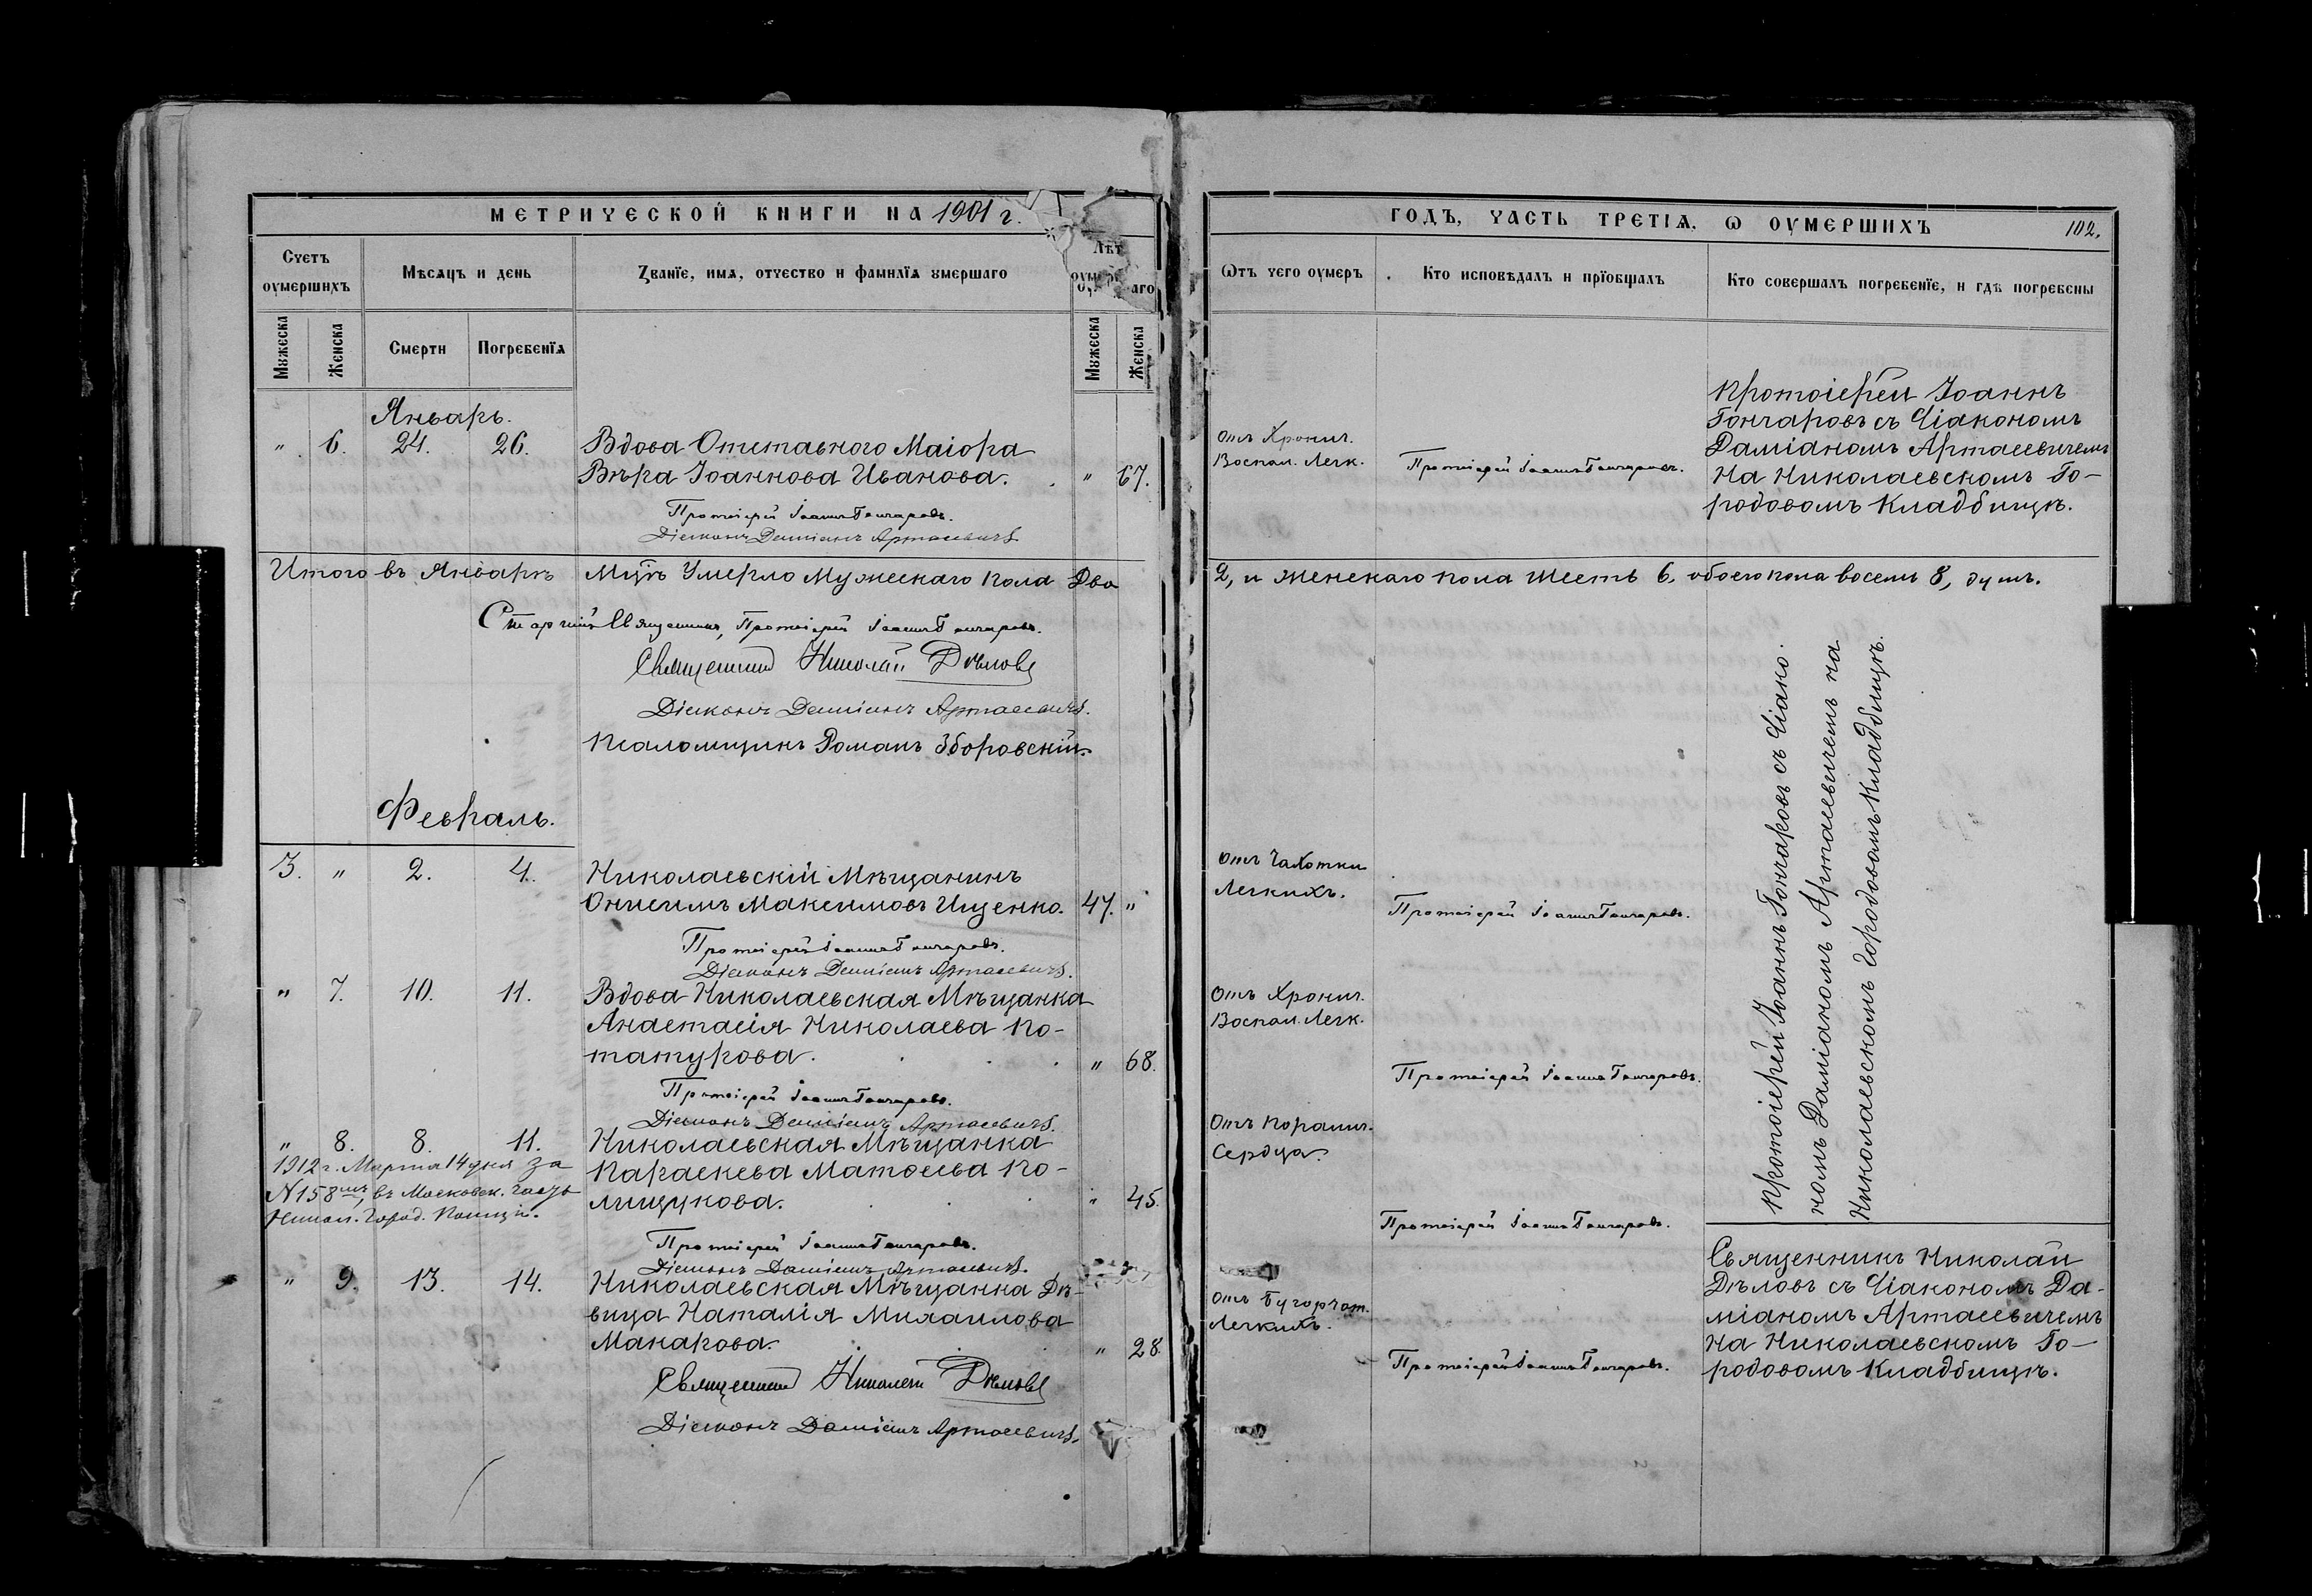 МЕТРИЧЕСКОЙ КНИГИ НА 1901 г.
Счетъ оумершихъ
Мѣсяцъ и день
Званїе, имѧ, отчество и фамилїѧ умершаго
Лѣт
Мужеска
Женска
Смерти
Погребенїѧ
Мужеска
Женска
Январь.
" 6. 24. 26. Вдова Отставного Маіора
Вѣра Іоаннова Иванова. " 67.
Протоіерей Іоаннъ Гончаровъ.
Діаконъ Даміанъ Артасевичъ
Итого въ Январѣ Мцѣ Умерло Мужескаго пола Два
Старшій Священникъ, Протоіерей Іоаннъ Гончаровъ.
Священникъ Николай Дѣловъ
Діаконъ Даміанъ Артасевичъ.
Псаломщикъ Романъ Зборовскій.
Февраль.
3. " 2. 4. Николаевскій Мѣщанинъ
Онисимъ Максимовъ Ищенко. 47. "
Протоіерей Іоаннъ Гончаровъ.
Діаконъ Даміанъ Артасевичъ.
" 7. 10. 11. Вдова Николаевская Мѣщанка
Анастасія Николаева По-
татурова. " 68.
Протоіерей Іоаннъ Гончаровъ.
Діаконъ Даміанъ Артасевичъ.
" 8. 8. 11. Николаевская Мѣщанка
Параскева Матѳеева По-
лищукова. " 45.
1912 г. Марта 14 дня за
N 158 мъ, въ Московск. часть
Никол. Город. Полиціи.
Протоіерей Іоаннъ Гончаровъ.
Діаконъ Даміанъ Артасевичъ.
" 9. 13. 14. Николаевская Мѣщанка Дѣ-
вица Наталія Михаилова
Макарова. " 28.
Священникъ Николай Дѣловъ
Діаконъ Даміанъ Артасевичъ.
ГОДЪ, ЧАСТЬ ТРЕТІѦ, Ѡ ОУМЕРШИХЪ
102.
Ѿтъ чего оумеръ
Кто исповѣдалъ и прїобщалъ
Кто совершалъ погребенїе, и гдѣ погребены
Отъ Хронич.
Воспал. Легк.
Протоіерей Іоаннъ Гончаровъ.
Протоіерей Іоаннъ
Гончаровъ съ Діакономъ
Даміаномъ Артасевичемъ
На Николаевскомъ Го-
родовомъ Кладбищѣ.
2, и женскаго пола шесть 6. обоего пола восемь 8, душъ.
Отъ Чахотки
Легкихъ.
Протоіерей Іоаннъ Гончаровъ.
Отъ Хронич.
Воспал. Легк.
Протоіерей Іоаннъ Гончаровъ.
Отъ Паралич.
Сердца.
Протоіерей Іоаннъ Гончаровъ.
Протоіерей Іоаннъ Гончаровъ съ Діако.
номъ Даміаномъ Артасевичемъ на
Николаевскомъ Городовомъ Кладбищѣ.
Отъ Бугорчат.
Легкихъ.
Протоіерей Іоаннъ Гончаровъ.
Священникъ Николай
Дѣловъ съ Діакономъ Да-
міаномъ Артасевичемъ
На Николаевскомъ Го-
родовомъ Кладбищѣ.